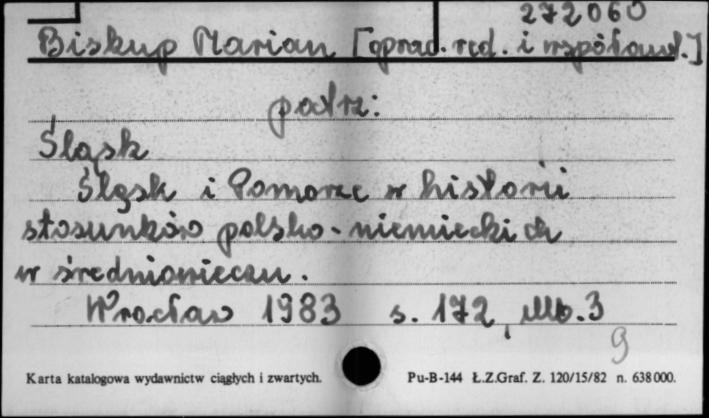 272060
Biskup Marian [oprac. red. i współaut.]
patrz:
Śląsk
Śląsk i Pomorze w historii
stosunków polsko-niemieckich
w średniowieczu.
Wrocław 1983 s. 172, nlb. 3
9
Karta katalogowa wydawnictw ciągłych i zwartych. Pu-B-144 Ł.Z.Graf. Z. 120/15/82 n. 638000.